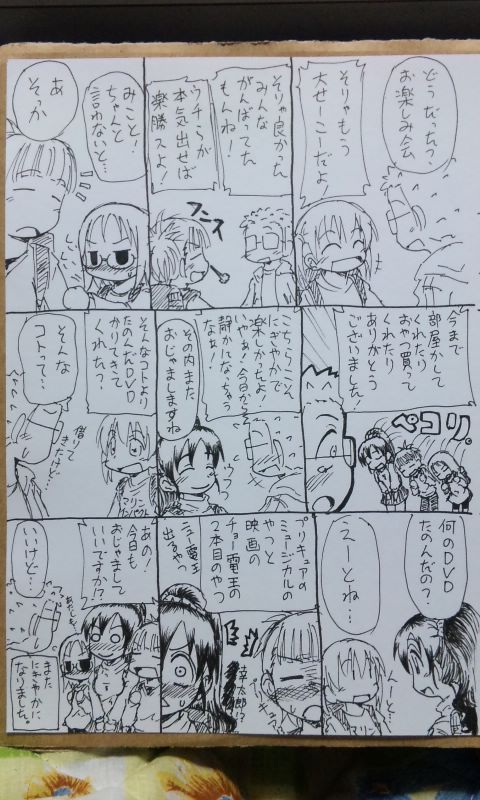 どうだった?
お楽しみ会
そりゃもう
大せーこーだよ!
そりゃ良かった
みんな
がんばってた
もんね!
フンス
ウチらが
本気出せば
楽勝スよ!
みこと!
ちゃんと
言わないと…
あ
そっか
今まで
部屋かして
くれたり
おやつ買って
くれたり
ありがとう
ございました!
ペコリ。
こちらこそ
にぎやかで
楽かったよ!
いやぁ!今日から
静かになっちゃう
なぁ!
その内また
おじゃましますね
ウフフ
そんなコトより
たのんだDVD
かりてきて
くれた?
マリン
借りて
きたけど…
そんな
コトって…
何のDVD
たのんだの?
えーとね…
んーと…
マリン
プリキュアの
ミュージカルの
やつと
映画の
チョー電王の
2本目のやつ
幸太郎!?
ニュー電王
出るやつ
あの!
今日も
おじゃまして
いいですか!?
いいけど…
また
にぎやかに
なりました。